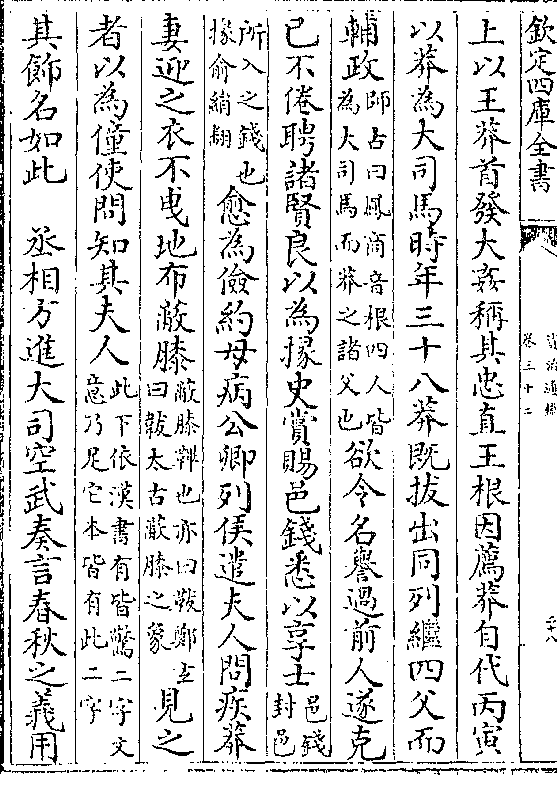 欽定四庫全書
資治通鑑
卷三十二
上以王莽首發大姦稱其忠直王根因薦莽自代丙寅
以莽為大司馬時年三十八莽既拔出同列繼四父而
輔政師古曰鳳商音根四人皆
為大司馬而莽之諸父也欲令名譽過前人遂克
已不倦聘諸賢良以為掾史賞賜邑錢悉以享士邑錢
封邑
所入之錢也
掾俞絹翻愈為儉約母病公卿列侯遣夫人問疾莽
妻迎之衣不曳地布蔽膝蔽膝韠也亦曰韍鄭玄
曰韍太古蔽膝之象見之
者以為僮使問知其夫人此下依漢書有皆驚二字文
意乃足它本皆有此二字
其飾名如此　丞相方進大司空武奏言春秋之義用